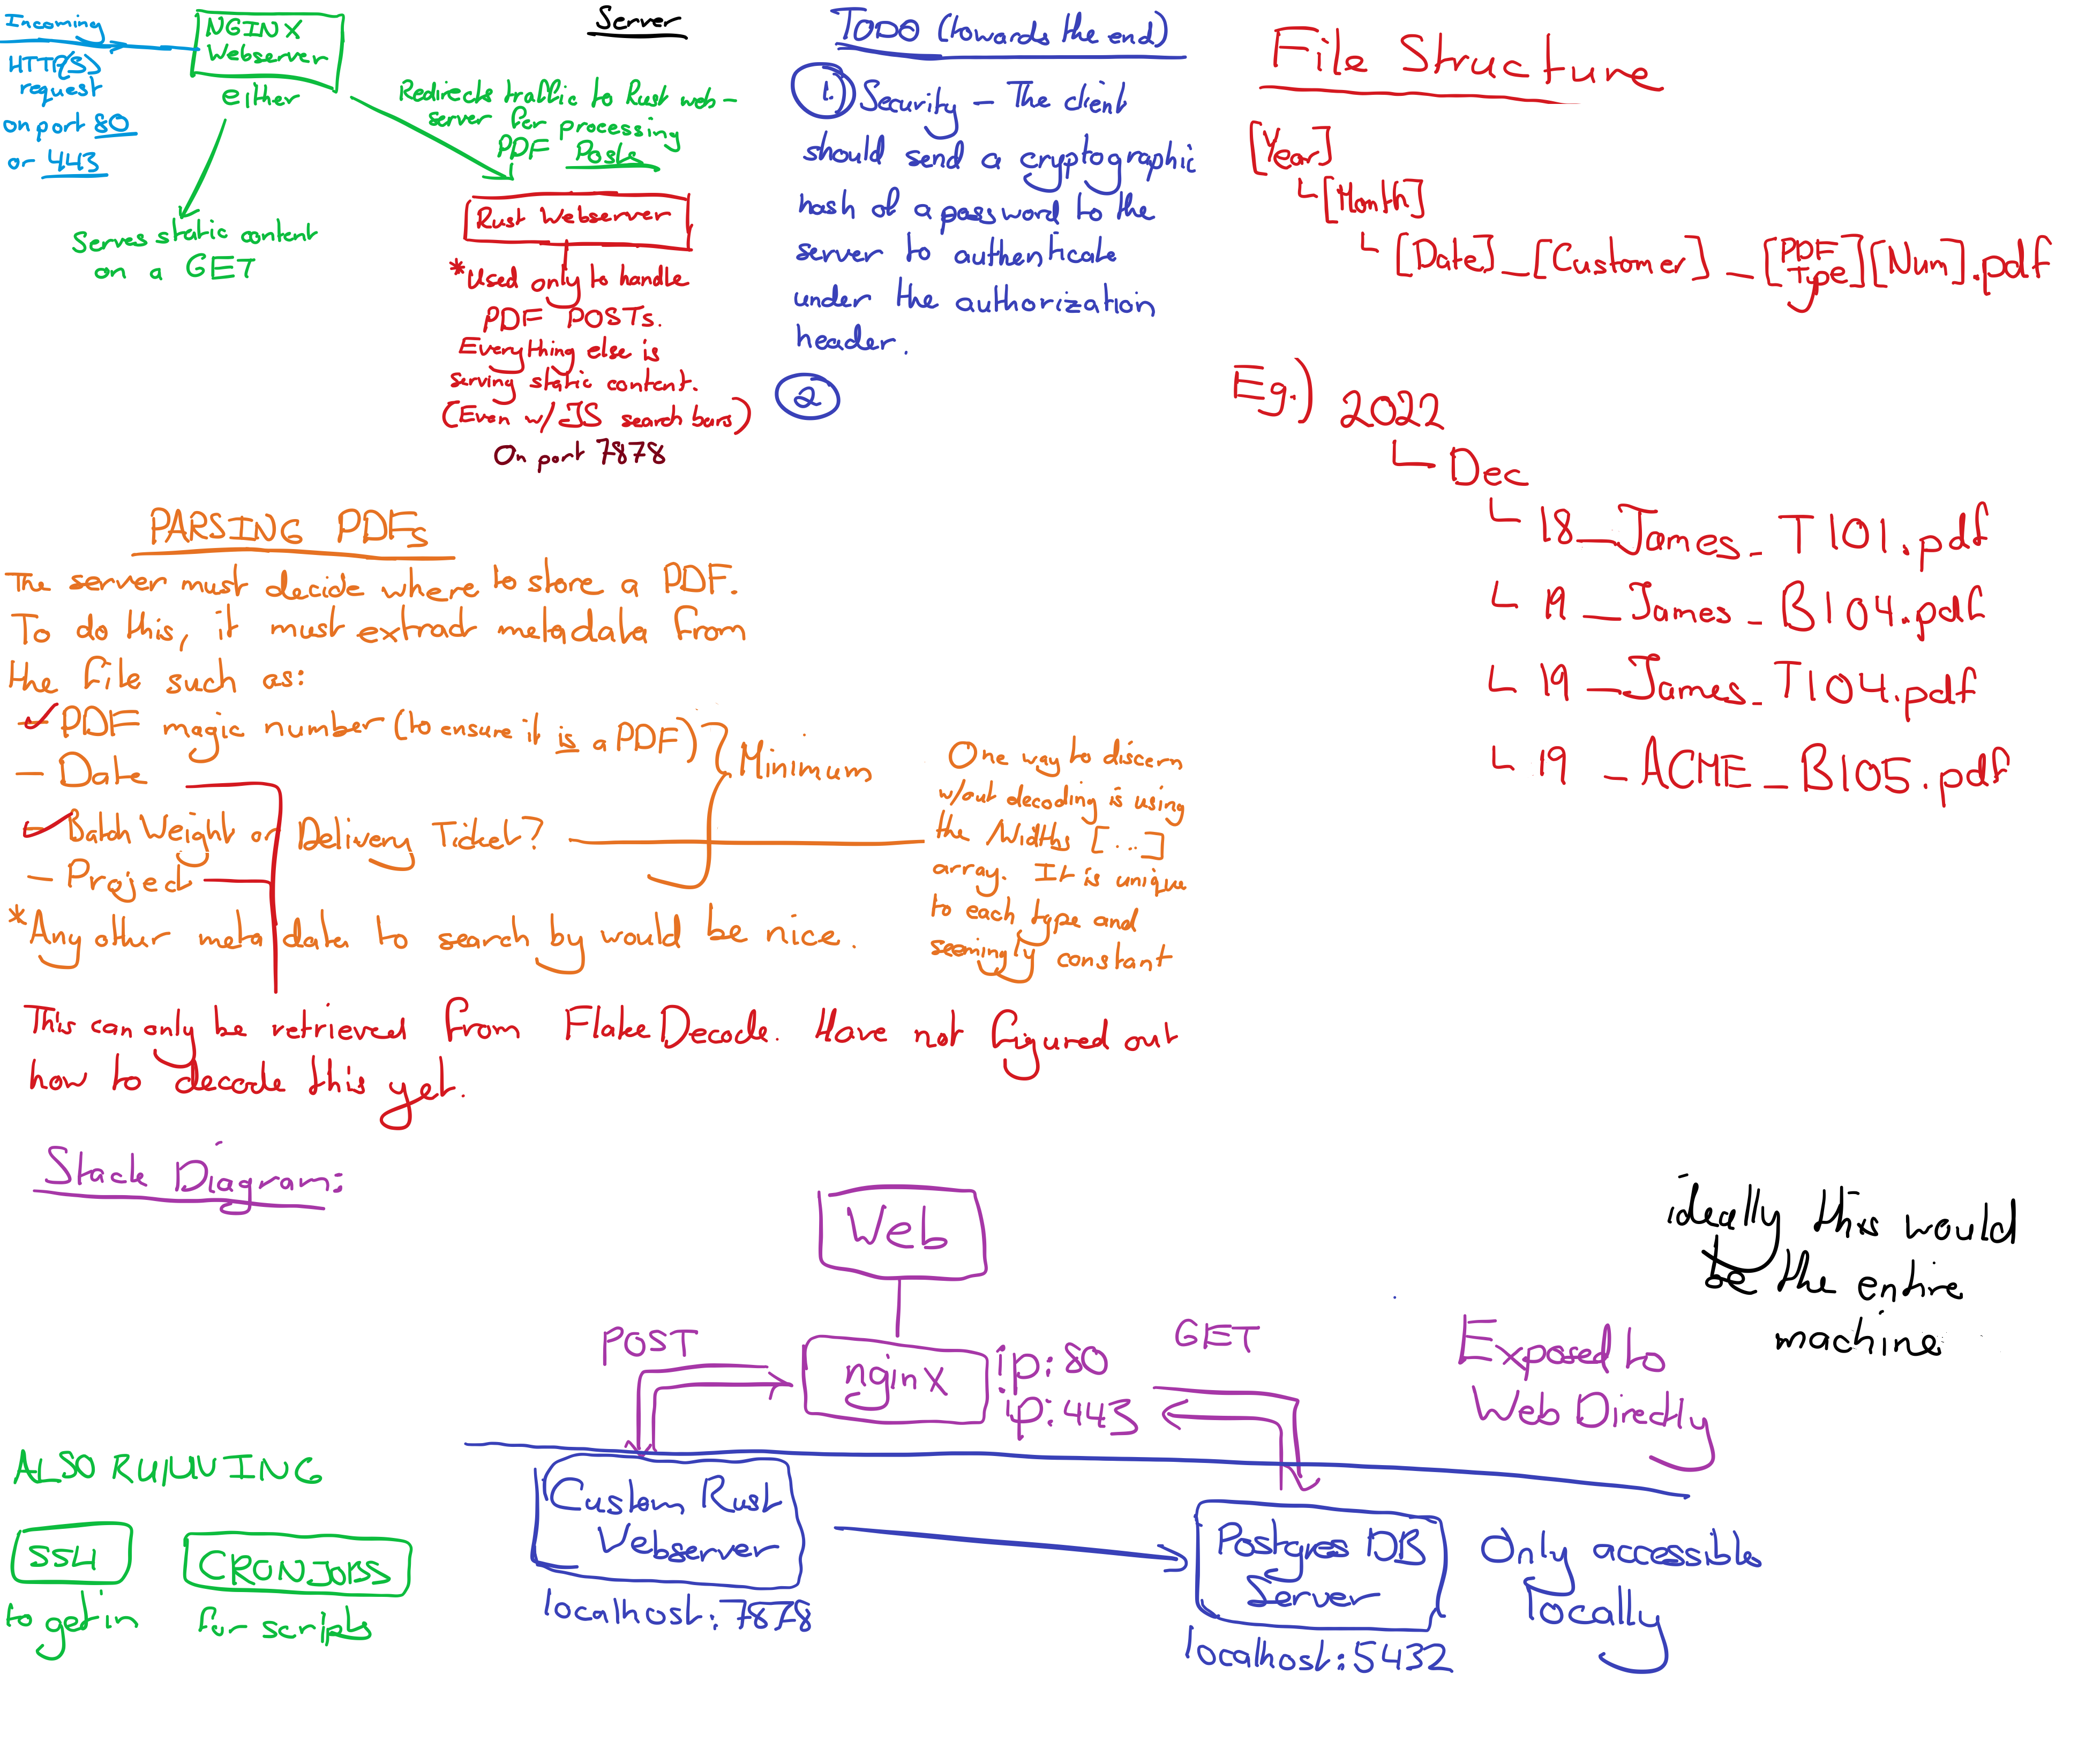 Incoming
HTTP(S)
request
on port 80
or 443
NGINX
Webserver
either
Serves static content
on a GET
Server
Redirects traffic to Rust web-
server for processing
PDF Posts
Rust Webserver
*Used only to handle
PDF POSTs.
Everything else is
serving static content.
(Even w/ JS search bars)
On port 7878
TODO (towards the end)
1. Security – The client
should send a cryptographic
hash of a password to the
server to authenticate
under the authorization
header.
2
File Structure
[Year]
└[Month]
└[Date]_[Customer]_[PDF Type][Num].pdf
Eg.) 2022
└Dec
└18_James_T101.pdf
└19_James_B104.pdf
└19_James_T104.pdf
└19_ACME_B105.pdf
PARSING PDFs
The server must decide where to store a PDF.
To do this, it must extract metadata from
the file such as:
– PDF magic number (to ensure it is a PDF)
– Date
– Batch Weight or Delivery Ticket?
– Project
*Any other meta data to search by would be nice.
Minimum
One way to discern
w/out decoding is using
the Widths [...]
array. It is unique
to each type and
seemingly constant
This can only be retrieved from FlateDecode. Have not figured out
how to decode this yet.
Stack Diagram:
Web
POST
nginx
ip:80
ip:443
GET
Exposed to
Web Directly
ideally this would
be the entire
machine
ALSO RUNNING
SSH
to get in
CRONJOBS
for scripts
Custom Rust
Webserver
localhost:7878
Postgres DB
Server
localhost:5432
Only accessible
locally